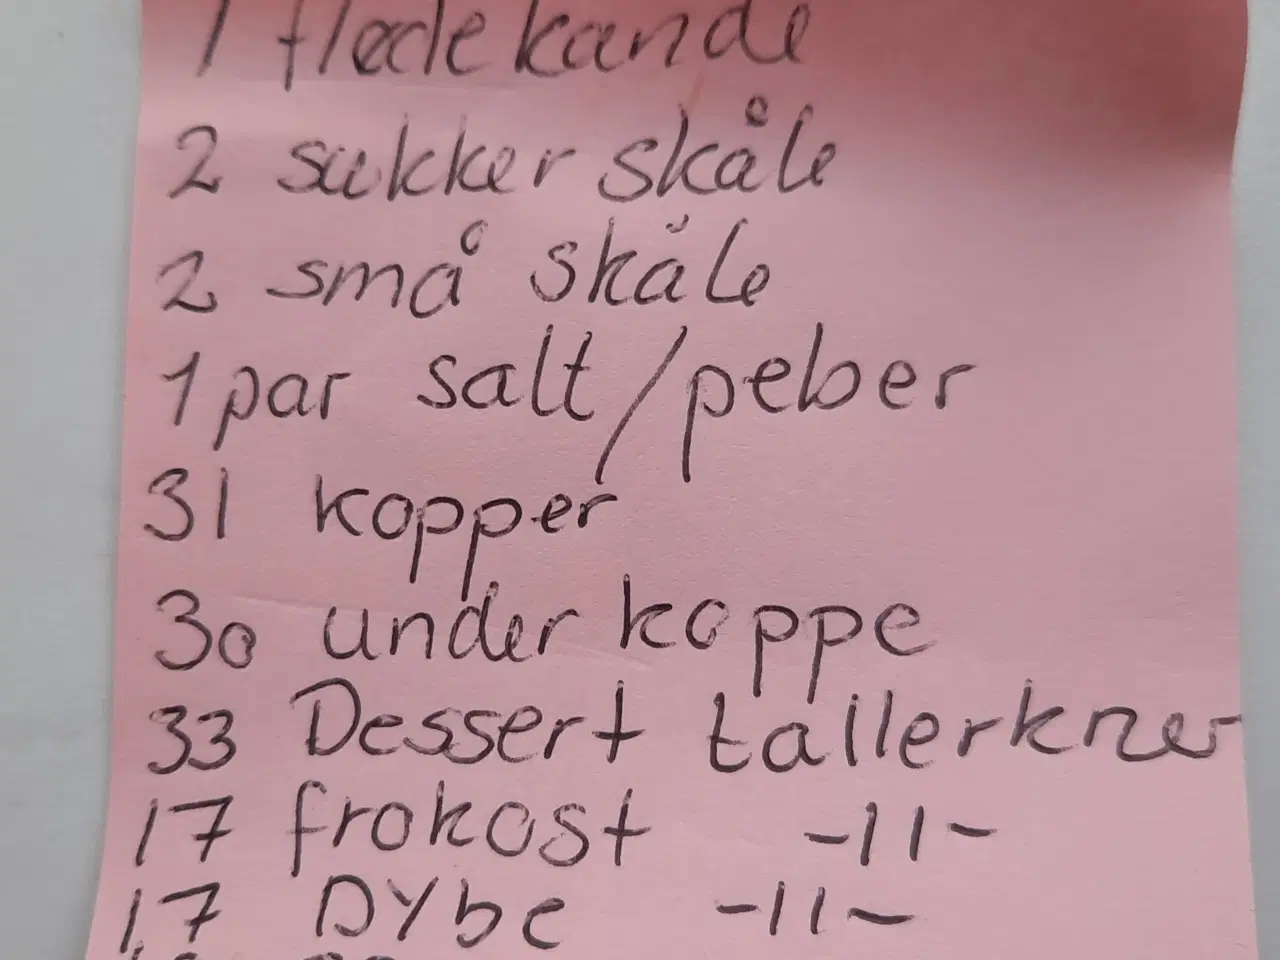 1 flødekande
2 sukker skåle
2 små skåle
1 par salt/peber
31 kopper
30 under koppe
33 Dessert tallerkner
17 frokost -11-
17 Dybe -11-